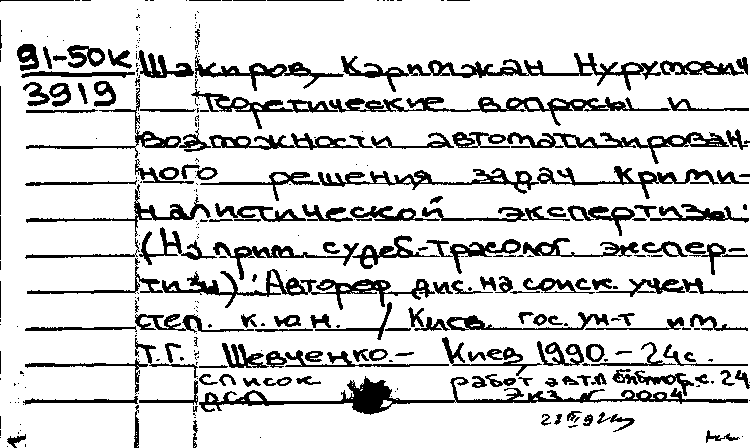 91-50к Шакиров, Каримжан Нурумович
3919 Теоретические вопросы и
возможности автоматизирован-
ного решения задач крими-
налистической экспертизы:
(На прим. судеб.-трасолог. экспер-
тизы): Автореф. дис. на соиск. учен
степ. к. ю. н. / Киев. гос. ун-т им.
Т.Г. Шевченко. — Киев 1990. — 24 с.
список работ авт. с. 24
ДСП Экз. № 2004